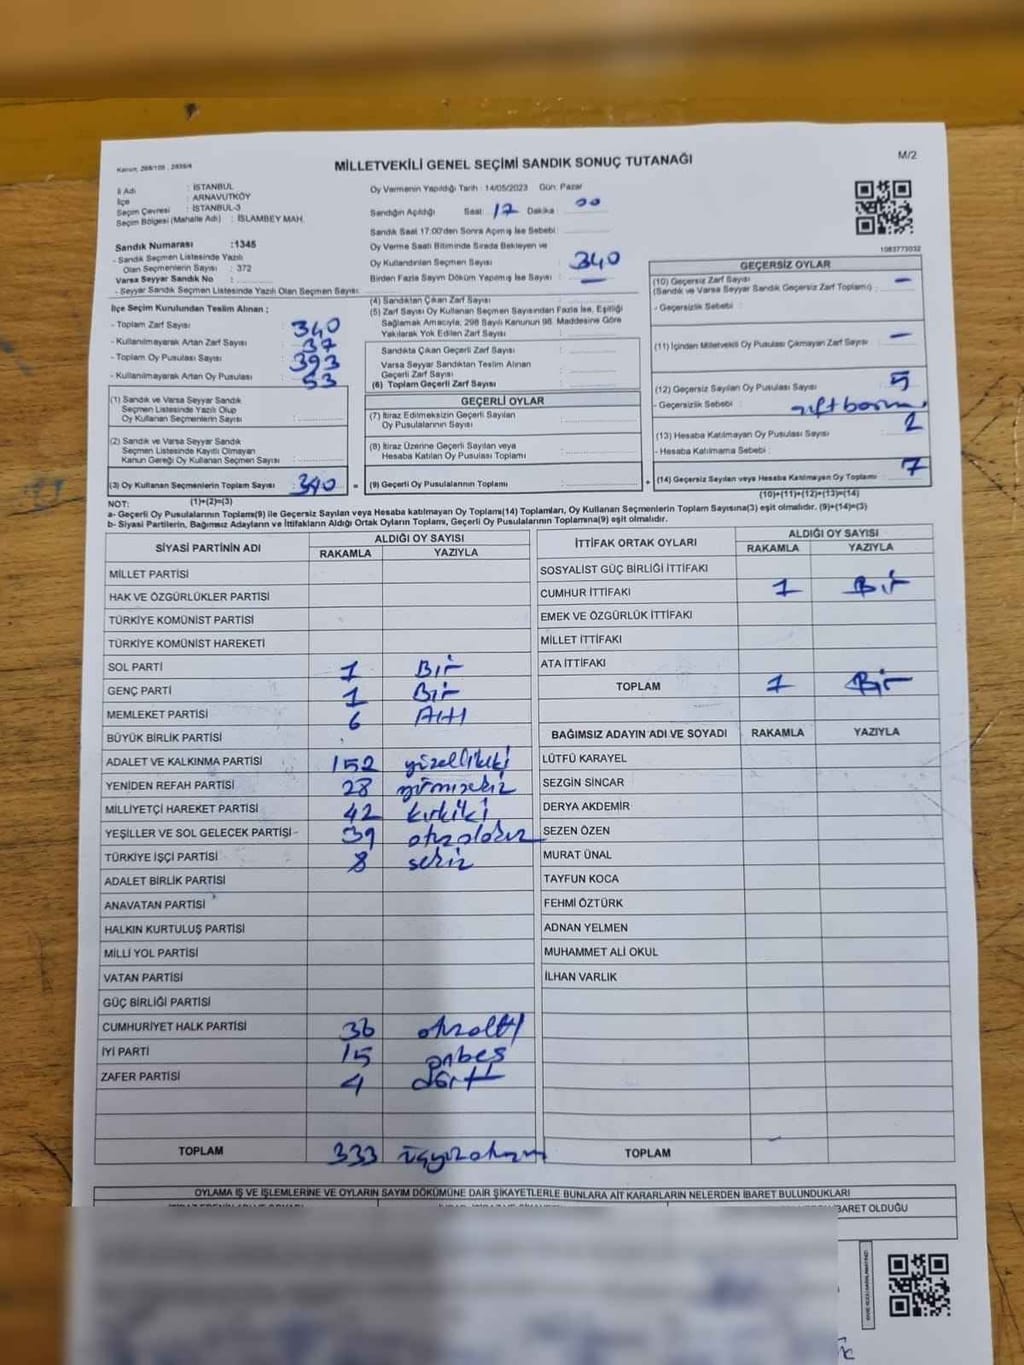 Kanun: 298/105 , 2839/4
MİLLETVEKİLİ GENEL SEÇİMİ SANDIK SONUÇ TUTANAĞI
M/2
İl Adı : İSTANBUL
İlçe : ARNAVUTKÖY
Seçim Çevresi : İSTANBUL-3
Seçim Bölgesi (Mahalle Adı) : İSLAMBEY MAH.
Oy Vermenin Yapıldığı Tarih : 14/05/2023 Gün: Pazar
Sandığın Açıldığı Saat 17 Dakika 00
Sandık Saat 17:00'den Sonra Açmış İse Sebebi :
Sandık Numarası :1345
- Sandık Seçmen Listesinde Yazılı
Olan Seçmenlerin Sayısı : 372
Varsa Seyyar Sandık No :
- Seyyar Sandık Seçmen Listesinde Yazılı Olan Seçmen Sayısı:
Oy Verme Saati Bitiminde Sırada Bekleyen ve
Oy Kullandırılan Seçmen Sayısı : 340
Birden Fazla Sayım Döküm Yapılmış İse Sayısı : —
1083773032
İlçe Seçim Kurulundan Teslim Alınan ;
- Toplam Zarf Sayısı : 340
- Kullanılmayarak Artan Zarf Sayısı : 37
- Toplam Oy Pusulası Sayısı : 393
- Kullanılmayarak Artan Oy Pusulası : 53
(1) Sandık ve Varsa Seyyar Sandık
Seçmen Listesinde Yazılı Olup
Oy Kullanan Seçmenlerin Sayısı :
(2) Sandık ve Varsa Seyyar Sandık
Seçmen Listesinde Kayıtlı Olmayan
Kanun Gereği Oy Kullanan Seçmen Sayısı :
(3) Oy Kullanan Seçmenlerin Toplam Sayısı : 340
(1)+(2)=(3)
(4) Sandıktan Çıkan Zarf Sayısı :
(5) Zarf Sayısı Oy Kullanan Seçmen Sayısından Fazla İse, Eşitliği
Sağlamak Amacıyla, 298 Sayılı Kanunun 98. Maddesine Göre
Yakılarak Yok Edilen Zarf Sayısı :
Sandıkta Çıkan Geçerli Zarf Sayısı :
Varsa Seyyar Sandıktan Teslim Alınan
Geçerli Zarf Sayısı :
(6) Toplam Geçerli Zarf Sayısı :
GEÇERLİ OYLAR
(7) İtiraz Edilmeksizin Geçerli Sayılan
Oy Pusulalarının Sayısı :
(8) İtiraz Üzerine Geçerli Sayılan veya
Hesaba Katılan Oy Pusulası Toplamı :
= (9) Geçerli Oy Pusulalarının Toplamı :
GEÇERSİZ OYLAR
(10) Geçersiz Zarf Sayısı
(Sandık ve Varsa Seyyar Sandık Geçersiz Zarf Toplamı) : —
- Geçersizlik Sebebi :
(11) İçinden Milletvekili Oy Pusulası Çıkmayan Zarf Sayısı : —
(12) Geçersiz Sayılan Oy Pusulası Sayısı : 5
- Geçersizlik Sebebi :
(13) Hesaba Katılmayan Oy Pusulası Sayısı : 2
- Hesaba Katılmama Sebebi :
+ (14) Geçersiz Sayılan veya Hesaba Katılmayan Oy Toplamı : 7
(10)+(11)+(12)+(13)=(14)
NOT:
a- Geçerli Oy Pusulalarının Toplamı(9) ile Geçersiz Sayılan veya Hesaba katılmayan Oy Toplamı(14) Toplamları, Oy Kullanan Seçmenlerin Toplam Sayısına(3) eşit olmalıdır. (9)+(14)=(3)
b- Siyasi Partilerin, Bağımsız Adayların ve İttifakların Aldığı Ortak Oyların Toplamı, Geçerli Oy Pusulalarının Toplamına(9) eşit olmalıdır.
SİYASİ PARTİNİN ADI ALDIĞI OY SAYISI
RAKAMLA YAZIYLA
MİLLET PARTİSİ
HAK VE ÖZGÜRLÜKLER PARTİSİ
TÜRKİYE KOMÜNİST PARTİSİ
TÜRKİYE KOMÜNİST HAREKETİ
SOL PARTİ 1 Bir
GENÇ PARTİ 1 Bir
MEMLEKET PARTİSİ 6 Altı
BÜYÜK BİRLİK PARTİSİ
ADALET VE KALKINMA PARTİSİ 152 yüzelliiki
YENİDEN REFAH PARTİSİ 28 yirmisekiz
MİLLİYETÇİ HAREKET PARTİSİ 42 kırkiki
YEŞİLLER VE SOL GELECEK PARTİSİ 39 otuzdokuz
TÜRKİYE İŞÇİ PARTİSİ 8 sekiz
ADALET BİRLİK PARTİSİ
ANAVATAN PARTİSİ
HALKIN KURTULUŞ PARTİSİ
MİLLİ YOL PARTİSİ
VATAN PARTİSİ
GÜÇ BİRLİĞİ PARTİSİ
CUMHURİYET HALK PARTİSİ 36 otuzaltı
İYİ PARTİ 15 onbeş
ZAFER PARTİSİ 4 dört
TOPLAM 333
İTTİFAK ORTAK OYLARI ALDIĞI OY SAYISI
RAKAMLA YAZIYLA
SOSYALİST GÜÇ BİRLİĞİ İTTİFAKI
CUMHUR İTTİFAKI 1 Bir
EMEK VE ÖZGÜRLÜK İTTİFAKI
MİLLET İTTİFAKI
ATA İTTİFAKI
TOPLAM 1 Bir
BAĞIMSIZ ADAYIN ADI VE SOYADI RAKAMLA YAZIYLA
LÜTFÜ KARAYEL
SEZGİN SİNCAR
DERYA AKDEMİR
SEZEN ÖZEN
MURAT ÜNAL
TAYFUN KOCA
FEHMİ ÖZTÜRK
ADNAN YELMEN
MUHAMMET ALİ OKUL
İLHAN VARLIK
TOPLAM
OYLAMA İŞ VE İŞLEMLERİNE VE OYLARIN SAYIM DÖKÜMÜNE DAİR ŞİKAYETLERLE BUNLARA AİT KARARLARIN NELERDEN İBARET BULUNDUKLARI
İBARET OLDUĞU